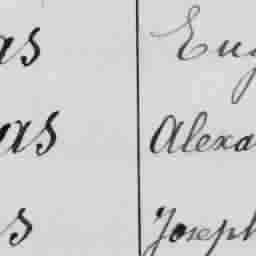 as Eug
as Alexa
s Joseph